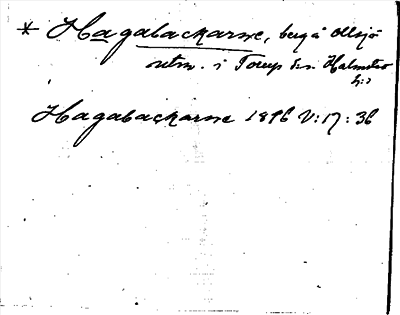 * Hagabackarne, berg å Allsjö
utm. i Torup s:n. Halmstad
h:d
Hagabackarne 1896 V: 17: 36